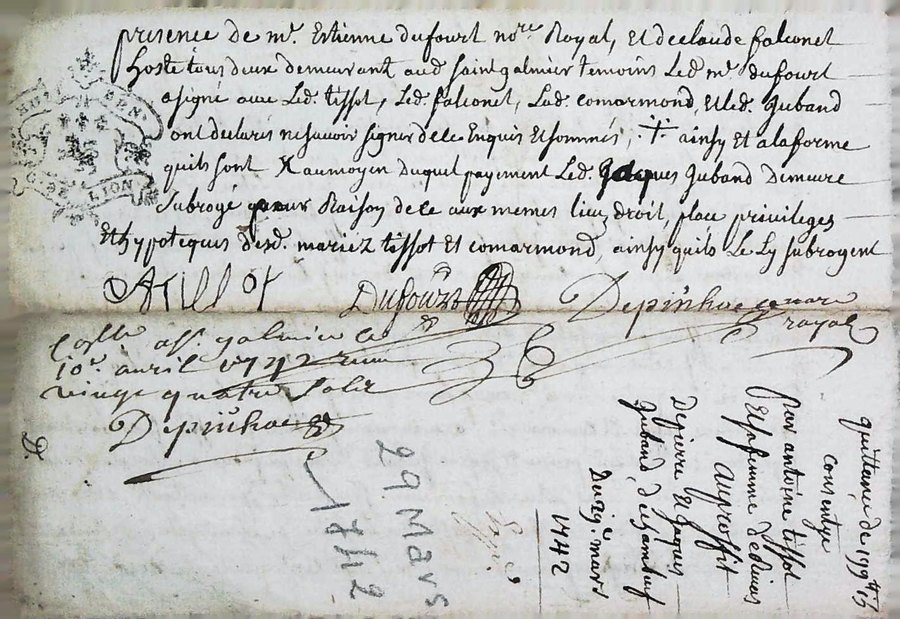 presence de mr. Estienne dufourt nore Royal, et de claude falconet
hoste tous deux demeurant aud saint galmier temoins Led. mr. dufourt
a signé avec Led. tissot, Led. falconet, Lad. comarmond, et led. Juband
ont declarés ne savoir signer de ce Enquis et sommés, ainsy et a la forme
quils sont X au moyen duquel payement Led. Jacques Juband demeure
Subrogé pour Raison de ce aux memes lieu, droit, place privileges
et hypoteques desd. mariez tissot et comarmond, ainsy quils Le Ly subrogent
ATISSOT Dufourt Depinhac nore
royal
LION
a st. galmier le
10e avril 1742
vingt quatre sols
Depinhac
29 Mars
1742
quittance de 199# 15
consentye
par antoine tissot
et sa femme
au proffit
De pierre et Jacques
Juband,
Du 29e mars
1742